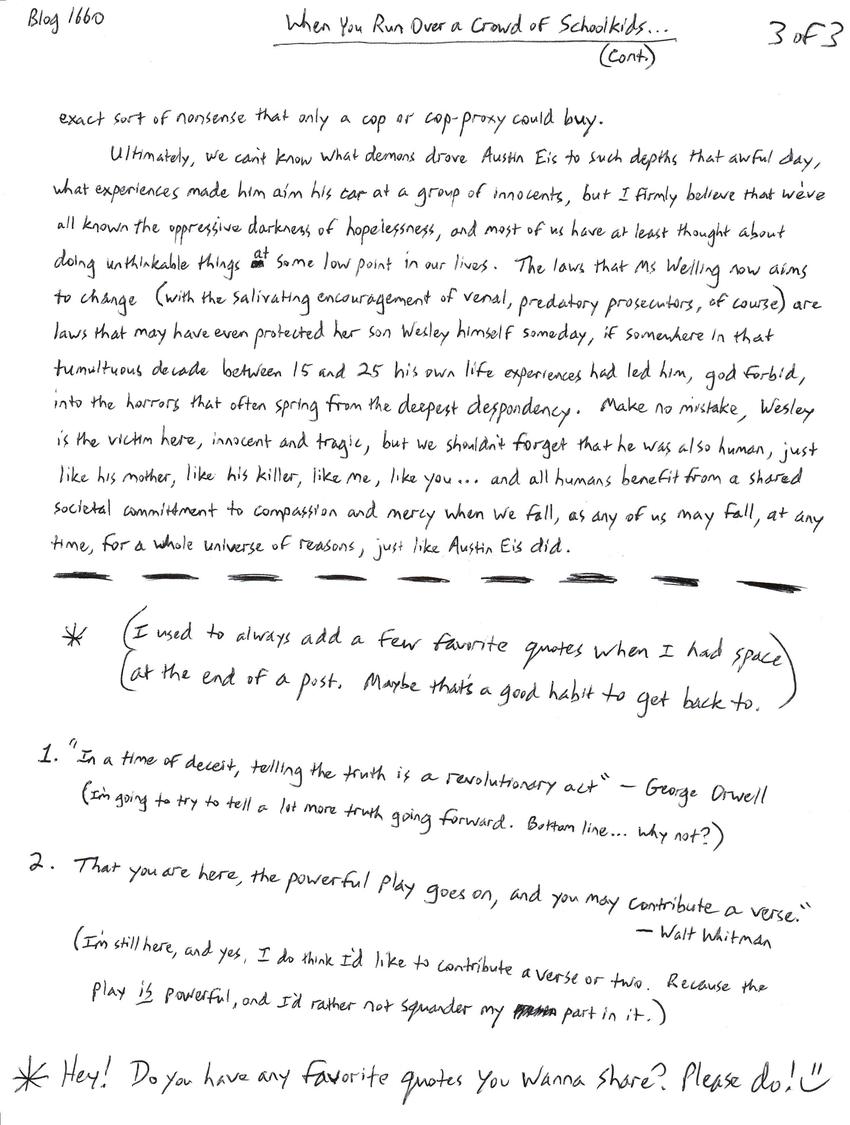 Blog 1660
When You Run Over a Crowd of Schoolkids...
(Cont.)
3 of 3
exact sort of nonsense that only a cop or cop-proxy could buy.
Ultimately, we can't know what demons drove Austin Eis to such depths that awful day,
what experiences made him aim his car at a group of innocents, but I firmly believe that we've
all known the oppressive darkness of hopelessness, and most of us have at least thought about
doing unthinkable things at some low point in our lives. The laws that Ms Welling now aims
to change (with the salivating encouragement of venal, predatory prosecutors, of course) are
laws that may have even protected her son Wesley himself someday, if somewhere in that
tumultuous decade between 15 and 25 his own life experiences had led him, god forbid,
into the horrors that often spring from the deepest despondency. Make no mistake, Wesley
is the victim here, innocent and tragic, but we shouldn't forget that he was also human, just
like his mother, like his killer, like me, like you... and all humans benefit from a shared
societal committment to compassion and mercy when we fall, as any of us may fall, at any
time, for a whole universe of reasons, just like Austin Eis did.
* (I used to always add a few favorite quotes when I had space
at the end of a post. Maybe that's a good habit to get back to.)
1. "In a time of deceit, telling the truth is a revolutionary act" - George Orwell
(I'm going to try to tell a lot more truth going forward. Bottom line... why not?)
2. That you are here, the powerful play goes on, and you may contribute a verse."
- Walt Whitman
(I'm still here, and yes, I do think I'd like to contribute a verse or two. Because the
play is powerful, and I'd rather not squander my part in it.)
* Hey! Do you have any favorite quotes you wanna share? Please do! Ü